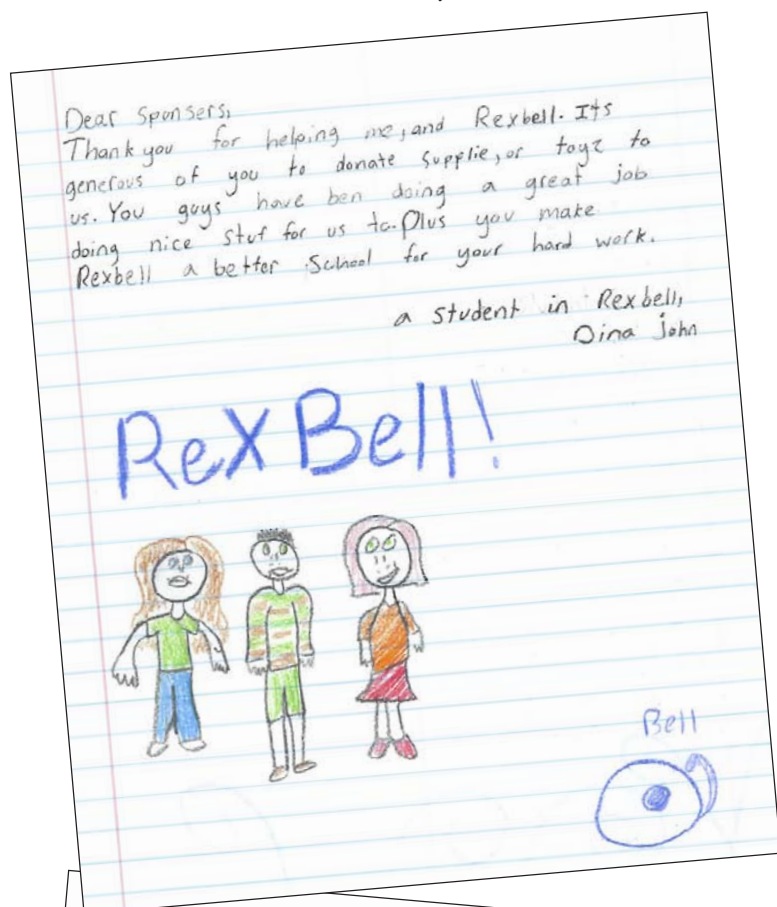 Dear Sponsers,
Thank you for helping me, and Rexbell. Its
generous of you to donate supplie, or toyz to
us. You guys have ben doing a great job
doing nice stuf for us to. Plus you make
Rexbell a better School for your hard work.
a student in Rexbell,
Dina John
RexBell!
Bell